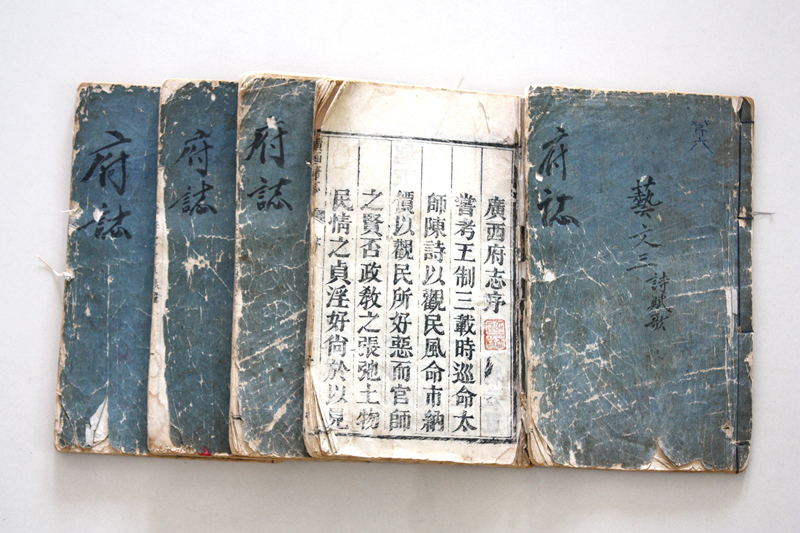 府誌
府誌
府誌
廣西府志序
嘗考王制三載時巡命太
師陳詩以觀民風命市納
價以觀民所好惡而官師
之賢否政教之張弛土物
民情之貞淫好尚於以見
府誌
藝文三
詩賦歌